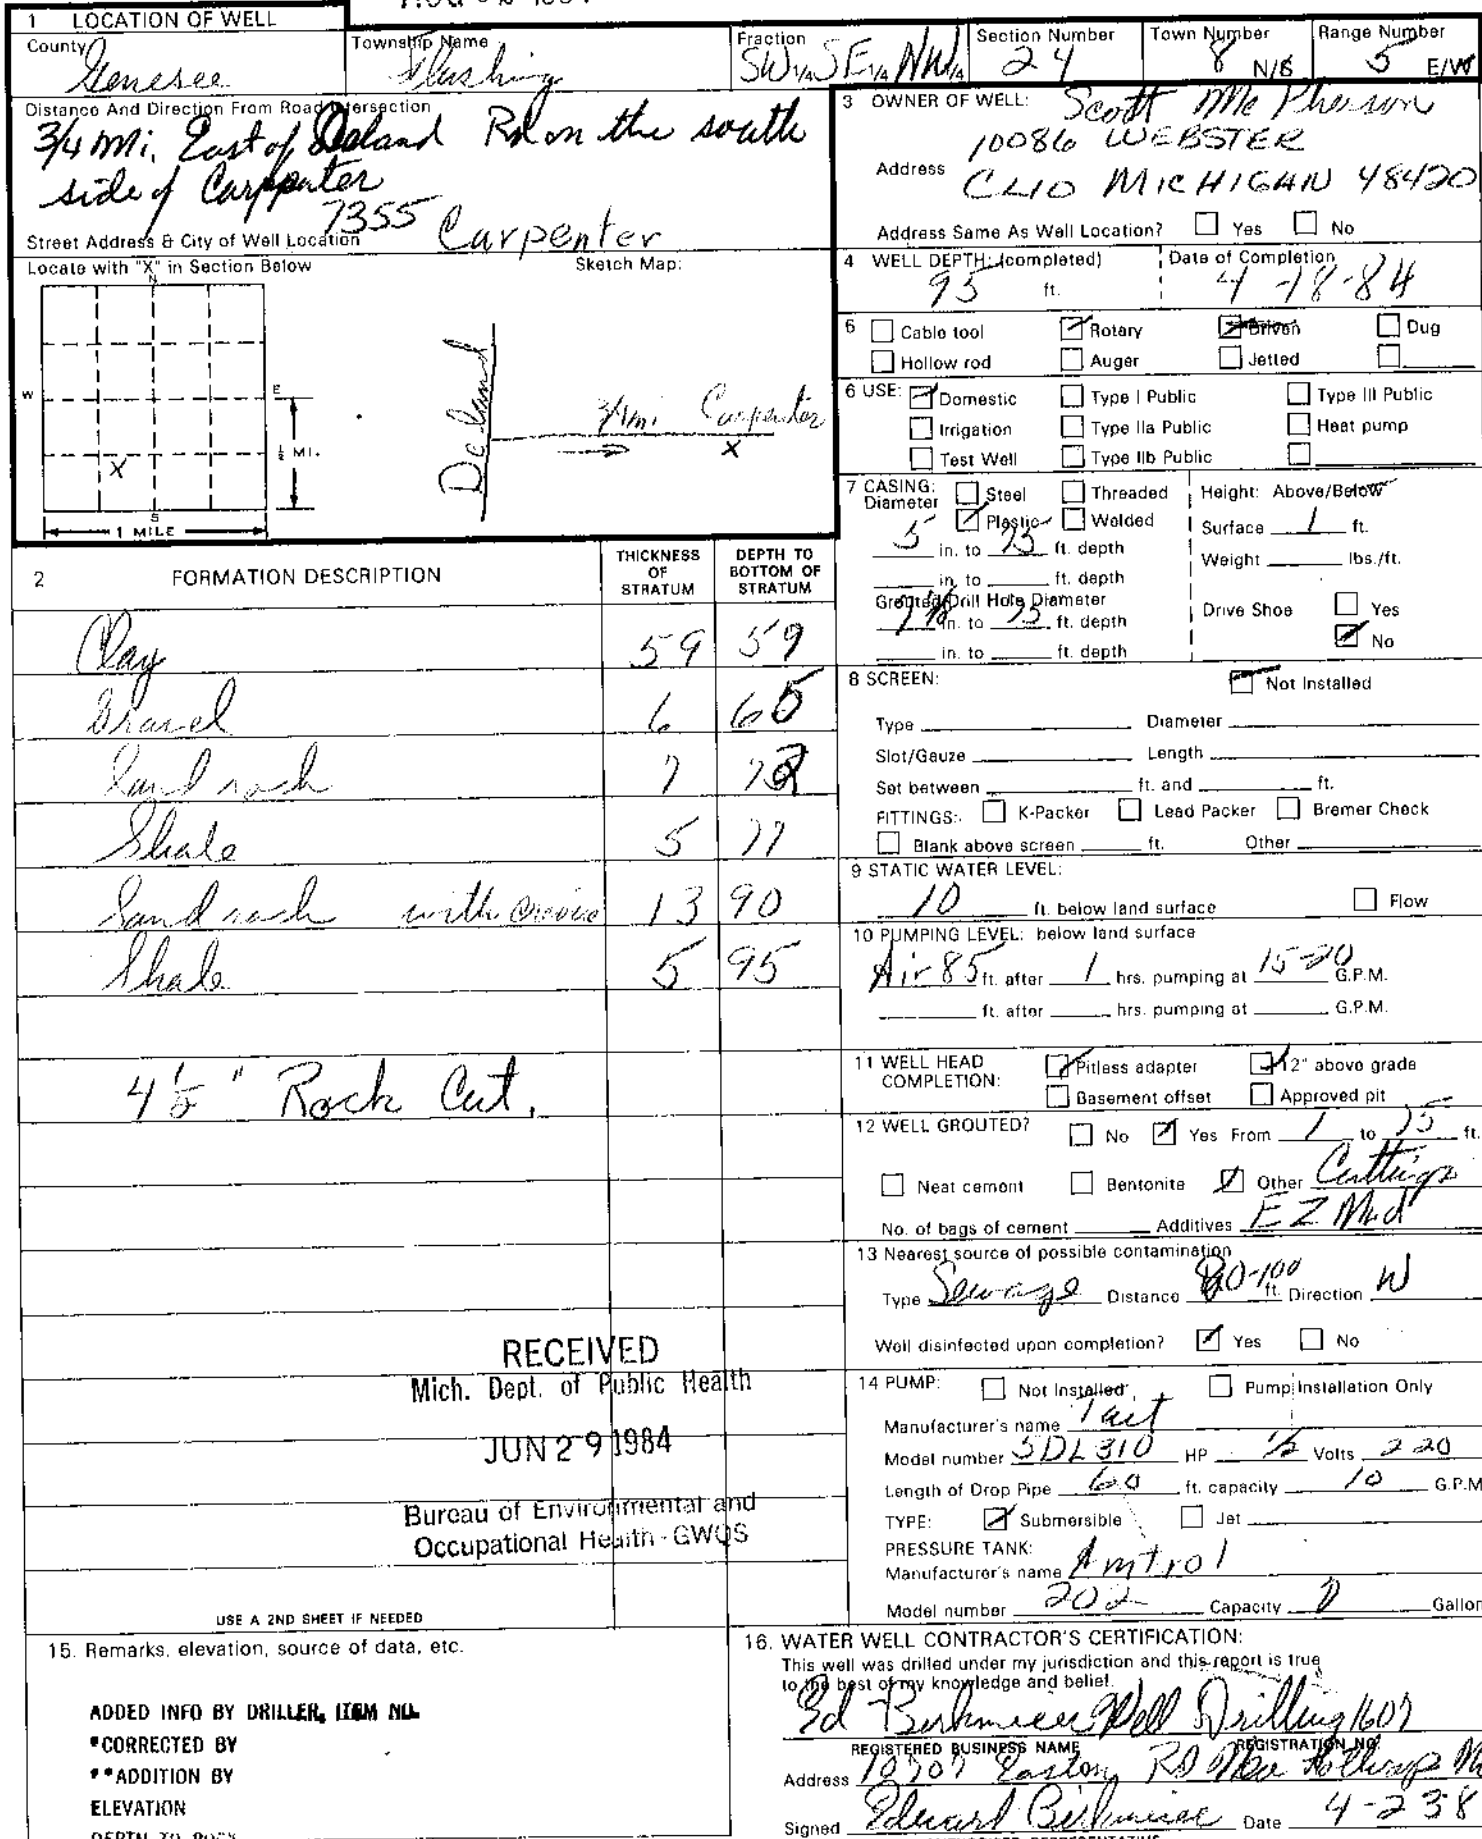 1 LOCATION OF WELL
County Genesee
Township Name Flushing
Fraction SW 1/4 SE 1/4 NW 1/4
Section Number 24
Town Number 8 N/S
Range Number 5 E/W
Distance And Direction From Road Intersection
3/4 Mi. East of Deland Rd on the south
side of Carpenter
7355 Carpenter
Street Address & City of Well Location
Locate with "X" in Section Below
Sketch Map:
N
W
E
S
X
1/2 MI.
1 MILE
Deland
3/4 mi Carpenter
X
3 OWNER OF WELL: Scott McPherson
10086 WEBSTER
Address CLIO MICHIGAN 48420
Address Same As Well Location? Yes No
4 WELL DEPTH: (completed) 95 ft.
Date of Completion 4-18-84
5 Cable tool Rotary Driven Dug
Hollow rod Auger Jetted
6 USE: Domestic Type I Public Type III Public
Irrigation Type IIa Public Heat pump
Test Well Type IIb Public
7 CASING: Steel Threaded
Diameter Plastic Welded
5 in. to 73 ft. depth
in. to ft. depth
Grouted Drill Hole Diameter
in. to 75 ft. depth
in. to ft. depth
Height: Above/Below
Surface 1 ft.
Weight lbs./ft.
Drive Shoe Yes
No
2 FORMATION DESCRIPTION
THICKNESS OF STRATUM
DEPTH TO BOTTOM OF STRATUM
Clay 59 59
Gravel 6 65
Sand rock 7 72
Shale 5 77
Sand rock with crevice 13 90
Shale 5 95
4 1/2" Rock Cut.
8 SCREEN: Not Installed
Type Diameter
Slot/Gauze Length
Set between ft. and ft.
FITTINGS: K-Packer Lead Packer Bremer Check
Blank above screen ft. Other
9 STATIC WATER LEVEL:
10 ft. below land surface Flow
10 PUMPING LEVEL: below land surface
Air 85 ft. after 1 hrs. pumping at 15-20 G.P.M.
ft. after hrs. pumping at G.P.M.
11 WELL HEAD COMPLETION: Pitless adapter 12" above grade
Basement offset Approved pit
12 WELL GROUTED? No Yes From 1 to 75 ft.
Neat cement Bentonite Other Cuttings
No. of bags of cement Additives EZ Mud
13 Nearest source of possible contamination
Type Sewage Distance 80-100 ft. Direction W
Well disinfected upon completion? Yes No
14 PUMP: Not Installed Pump Installation Only
Manufacturer's name Tait
Model number SDL310 HP 1/2 Volts 220
Length of Drop Pipe 60 ft. capacity 10 G.P.M
TYPE: Submersible Jet
PRESSURE TANK:
Manufacturer's name Amtrol
Model number 202 Capacity Gallon
RECEIVED
Mich. Dept. of Public Health
JUN 29 1984
Bureau of Environmental and
Occupational Health - GWQS
USE A 2ND SHEET IF NEEDED
15. Remarks, elevation, source of data, etc.
ADDED INFO BY DRILLER, ITEM NO.
*CORRECTED BY
**ADDITION BY
ELEVATION
DEPTH TO ROCK
16. WATER WELL CONTRACTOR'S CERTIFICATION:
This well was drilled under my jurisdiction and this report is true
to the best of my knowledge and belief.
Ed Birkmeier Well Drilling 1607
REGISTERED BUSINESS NAME REGISTRATION NO.
Address Easton Rd New Lothrop Mi
Signed Edward Birkmeier Date 4-23-8